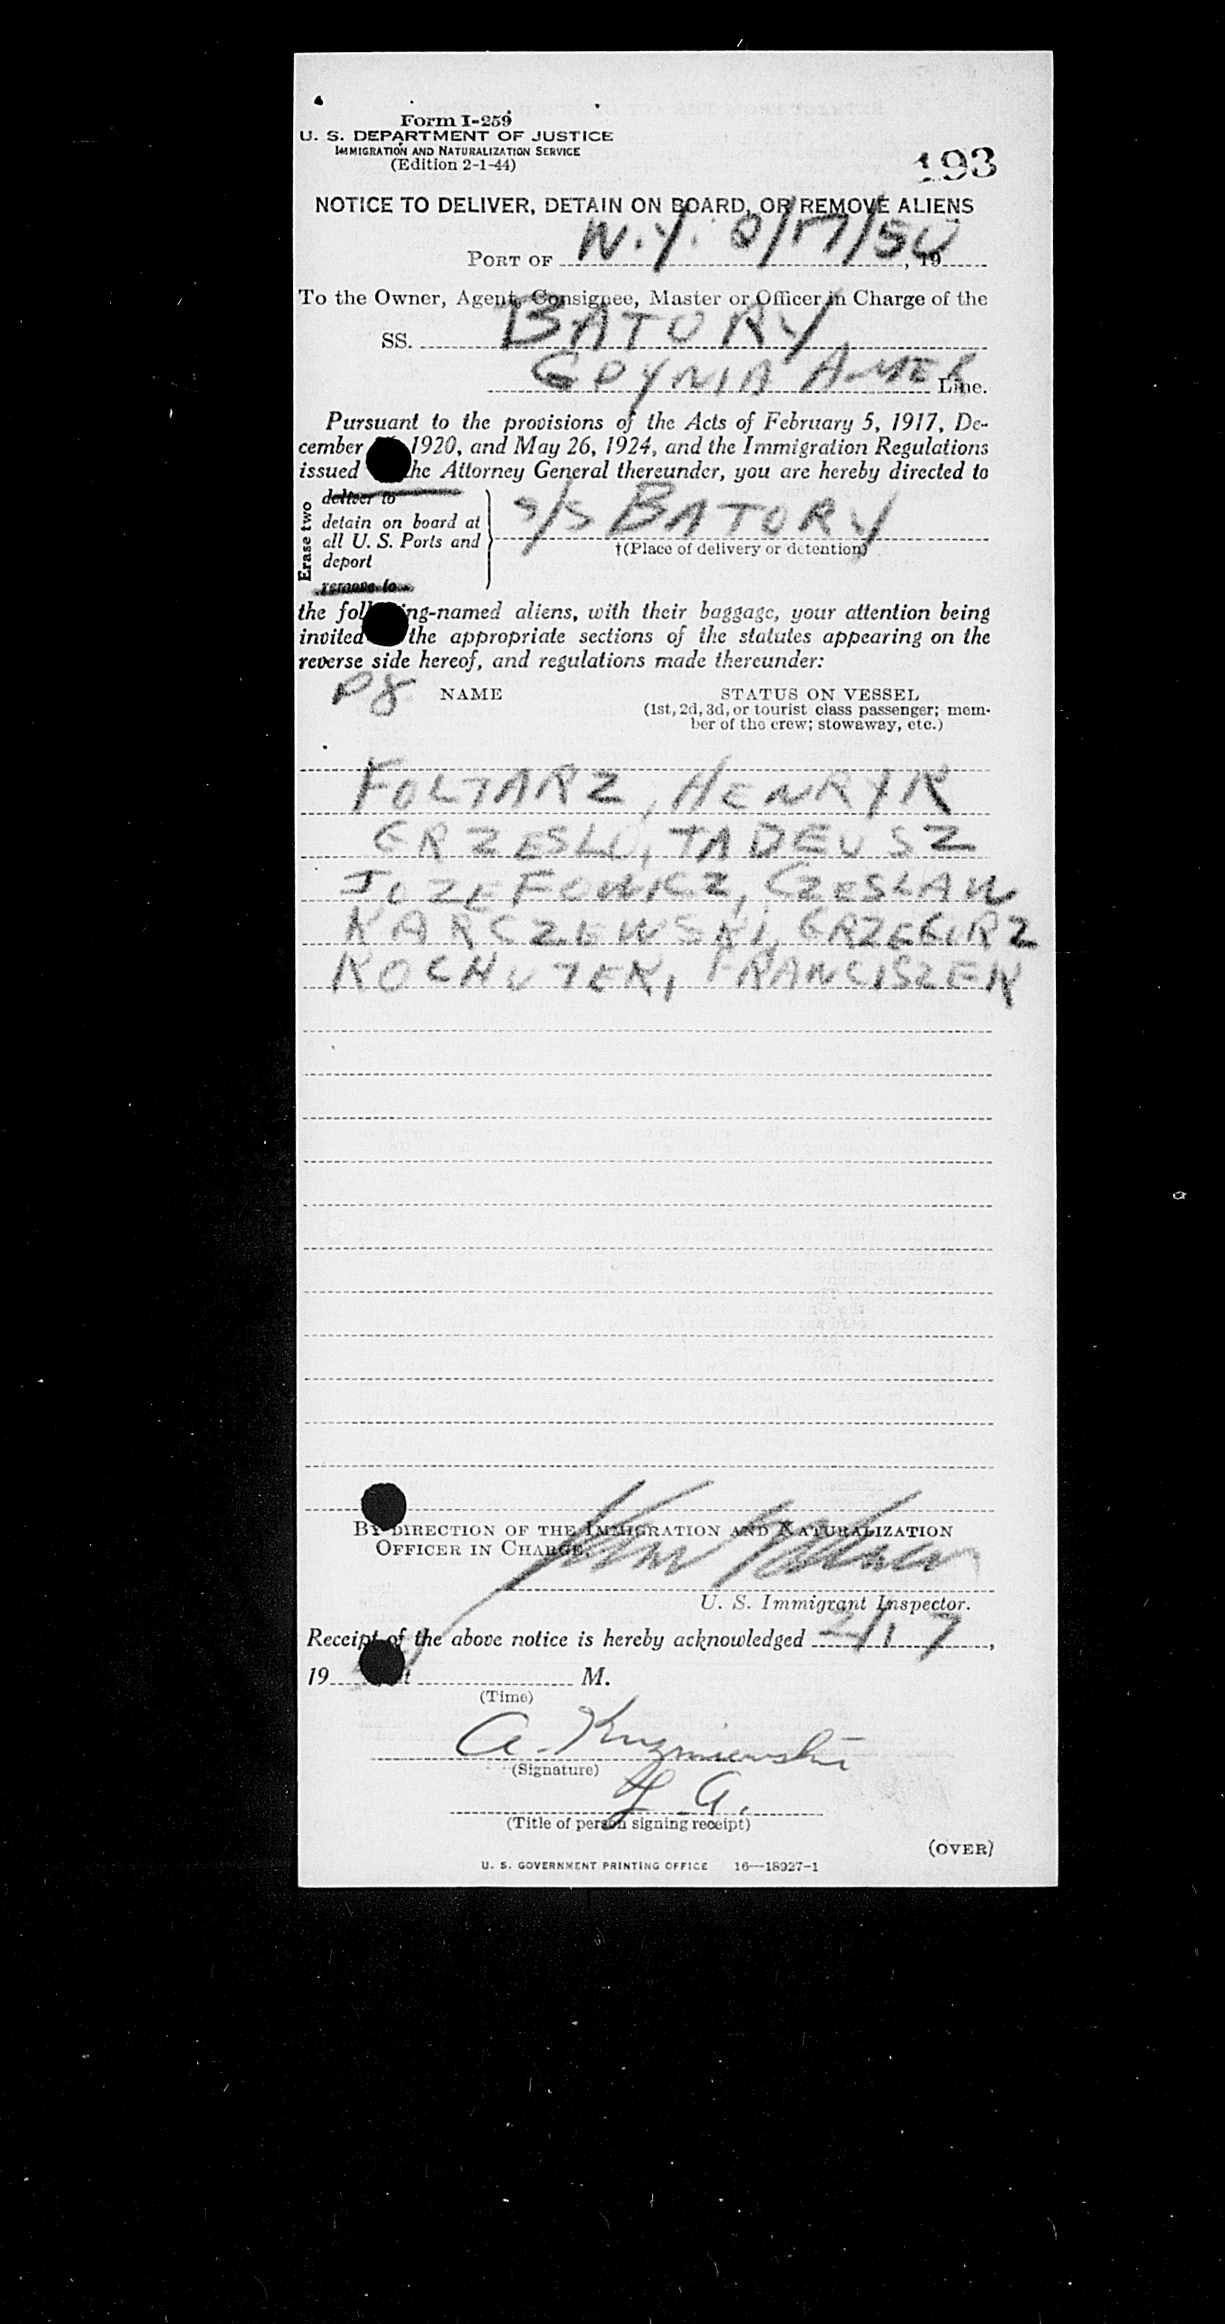 Form I-259
U. S. DEPARTMENT OF JUSTICE
IMMIGRATION AND NATURALIZATION SERVICE
(Edition 2-1-44)
193
NOTICE TO DELIVER, DETAIN ON BOARD, OR REMOVE ALIENS
PORT OF N.Y. /17/50, 19
To the Owner, Agent, Consignee, Master or Officer in Charge of the
SS. BATORY
GDYNIA AMER Line.
Pursuant to the provisions of the Acts of February 5, 1917, De-
cember 1920, and May 26, 1924, and the Immigration Regulations
issued the Attorney General thereunder, you are hereby directed to
Erase two
deliver to
detain on board at
all U. S. Ports and
deport
remove to
S/S BATORY
†(Place of delivery or detention)
the following-named aliens, with their baggage, your attention being
invited the appropriate sections of the statutes appearing on the
reverse side hereof, and regulations made thereunder:
P8 NAME STATUS ON VESSEL
(1st, 2d, 3d, or tourist class passenger; mem-
ber of the crew; stowaway, etc.)
FOLTARZ, HENRYK
GRZESLO, TADEUSZ
JOZEFOWICZ, CZESLAW
KARCZEWSKI, GRZEGORZ
KOCHUTEK, FRANCISZEK
BY DIRECTION OF THE IMMIGRATION AND NATURALIZATION
OFFICER IN CHARGE:
U. S. Immigrant Inspector.
Receipt of the above notice is hereby acknowledged 2/17,
19 M.
(Time)
A. Kuzmiewski
(Signature)
(Title of person signing receipt)
(OVER)
U. S. GOVERNMENT PRINTING OFFICE 16—18927-1